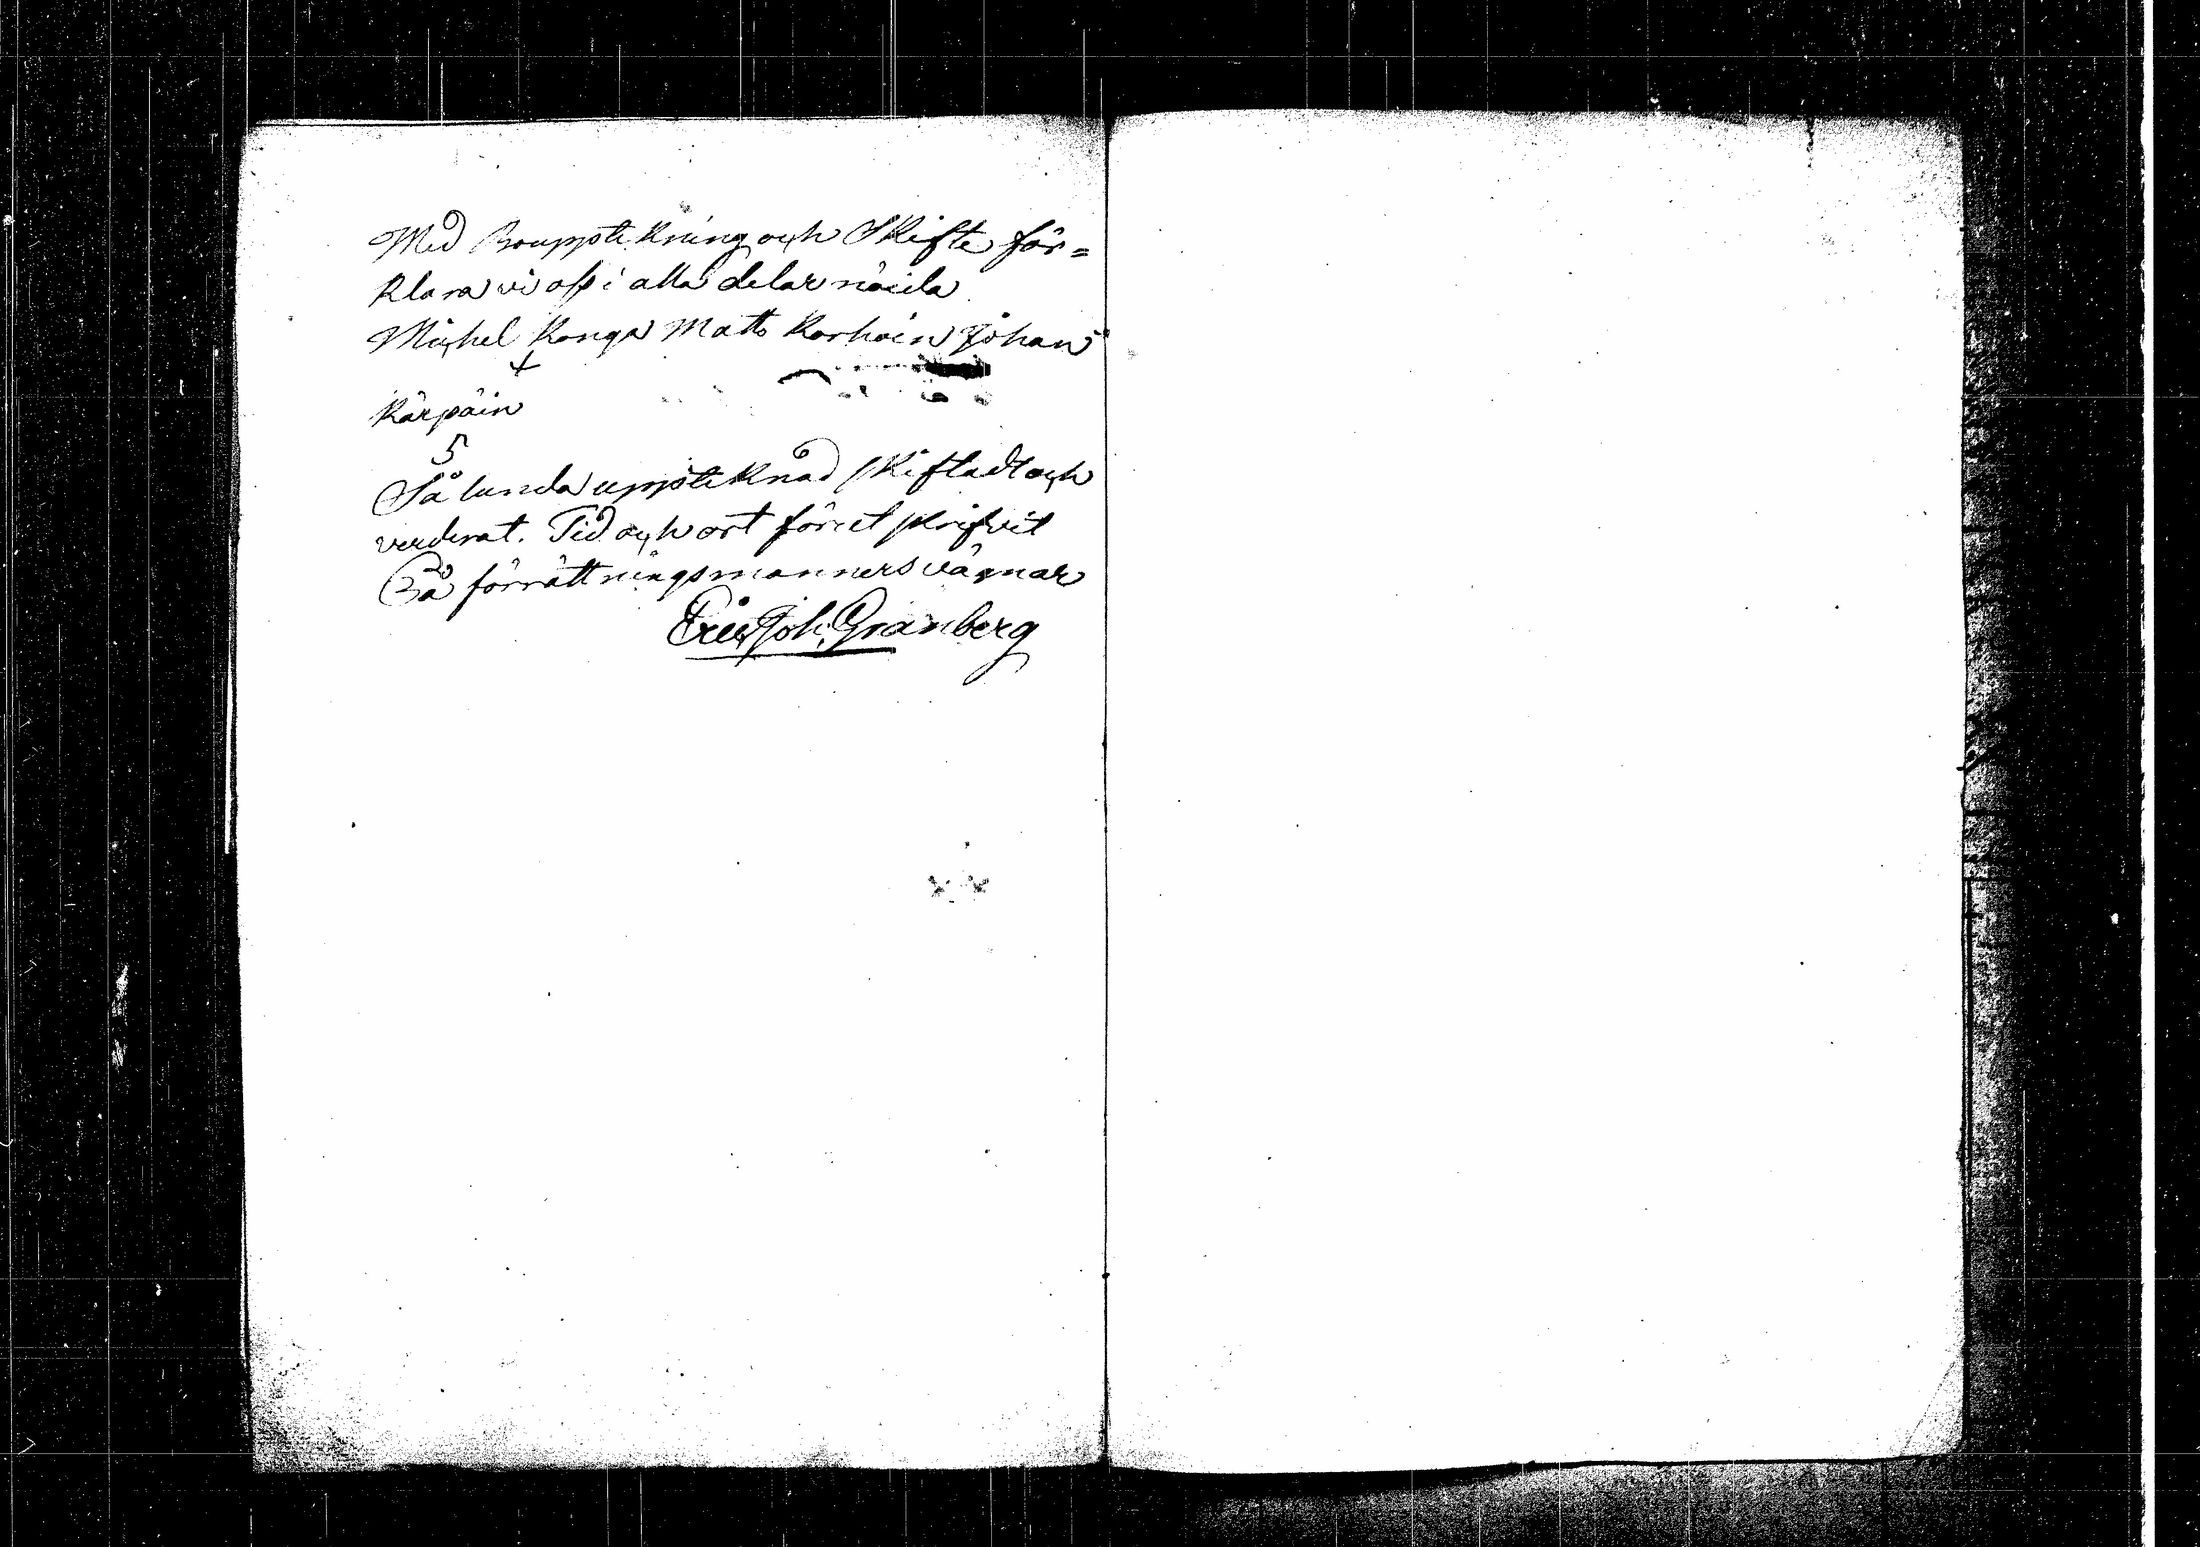 Med Bouppstekning och Skifte för=
klara vi oss i alla delar nöida
Michel Konga Matts Korhoin Johan
Kärpäin
Så lunda uppsteknad skiftadt och
verderat. Tid och ort förut skrifvit
På förrättningsmanners vägnar
Eric Joh. Granberg